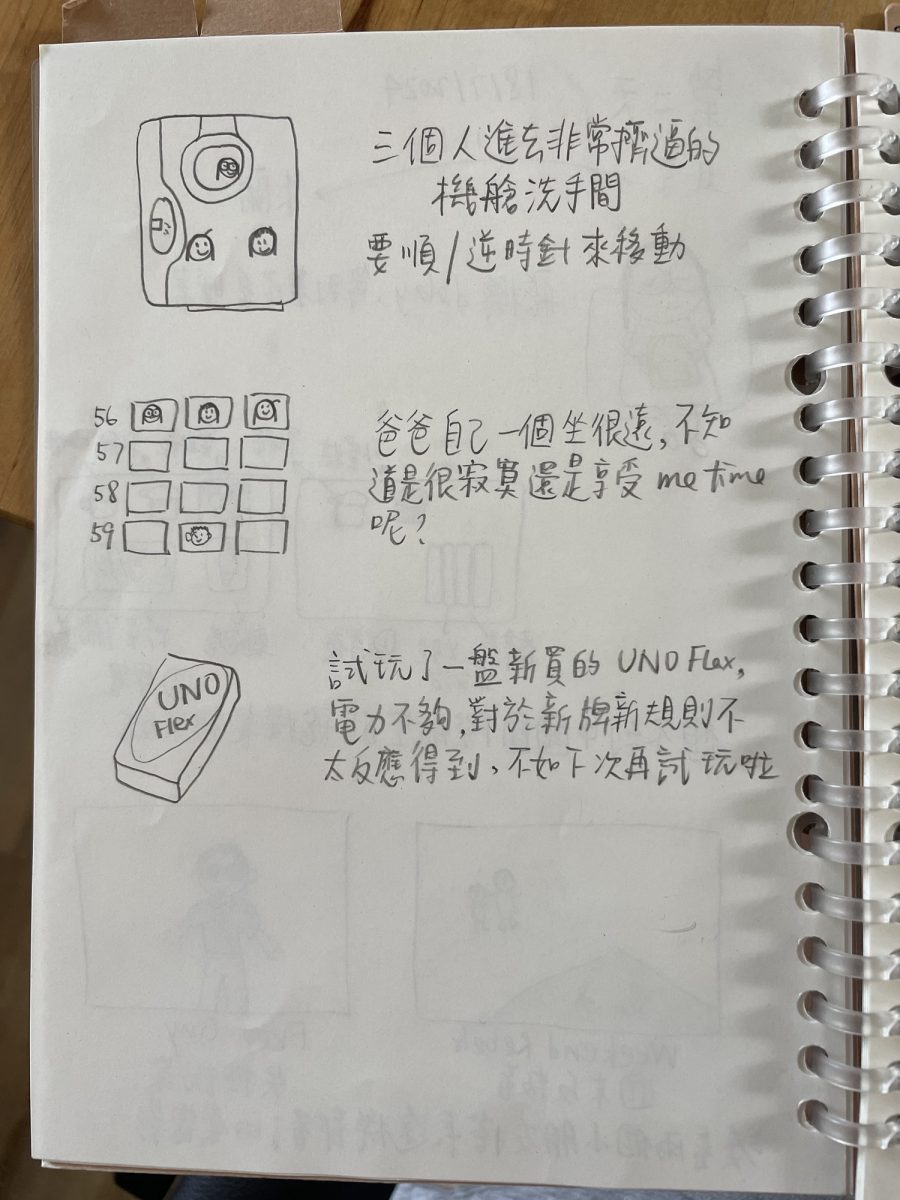 三個人進去非常擠逼的
機艙洗手間
要順/逆時針來移動
56
57
58
59
爸爸自己一個坐很遠,不知
道是很寂寞還是享受 me time
呢?
UNO
Flex
試玩了一盤新買的 UNO Flex,
電力不夠,對於新牌新規則不
太反應得到、不如下次再試玩啦